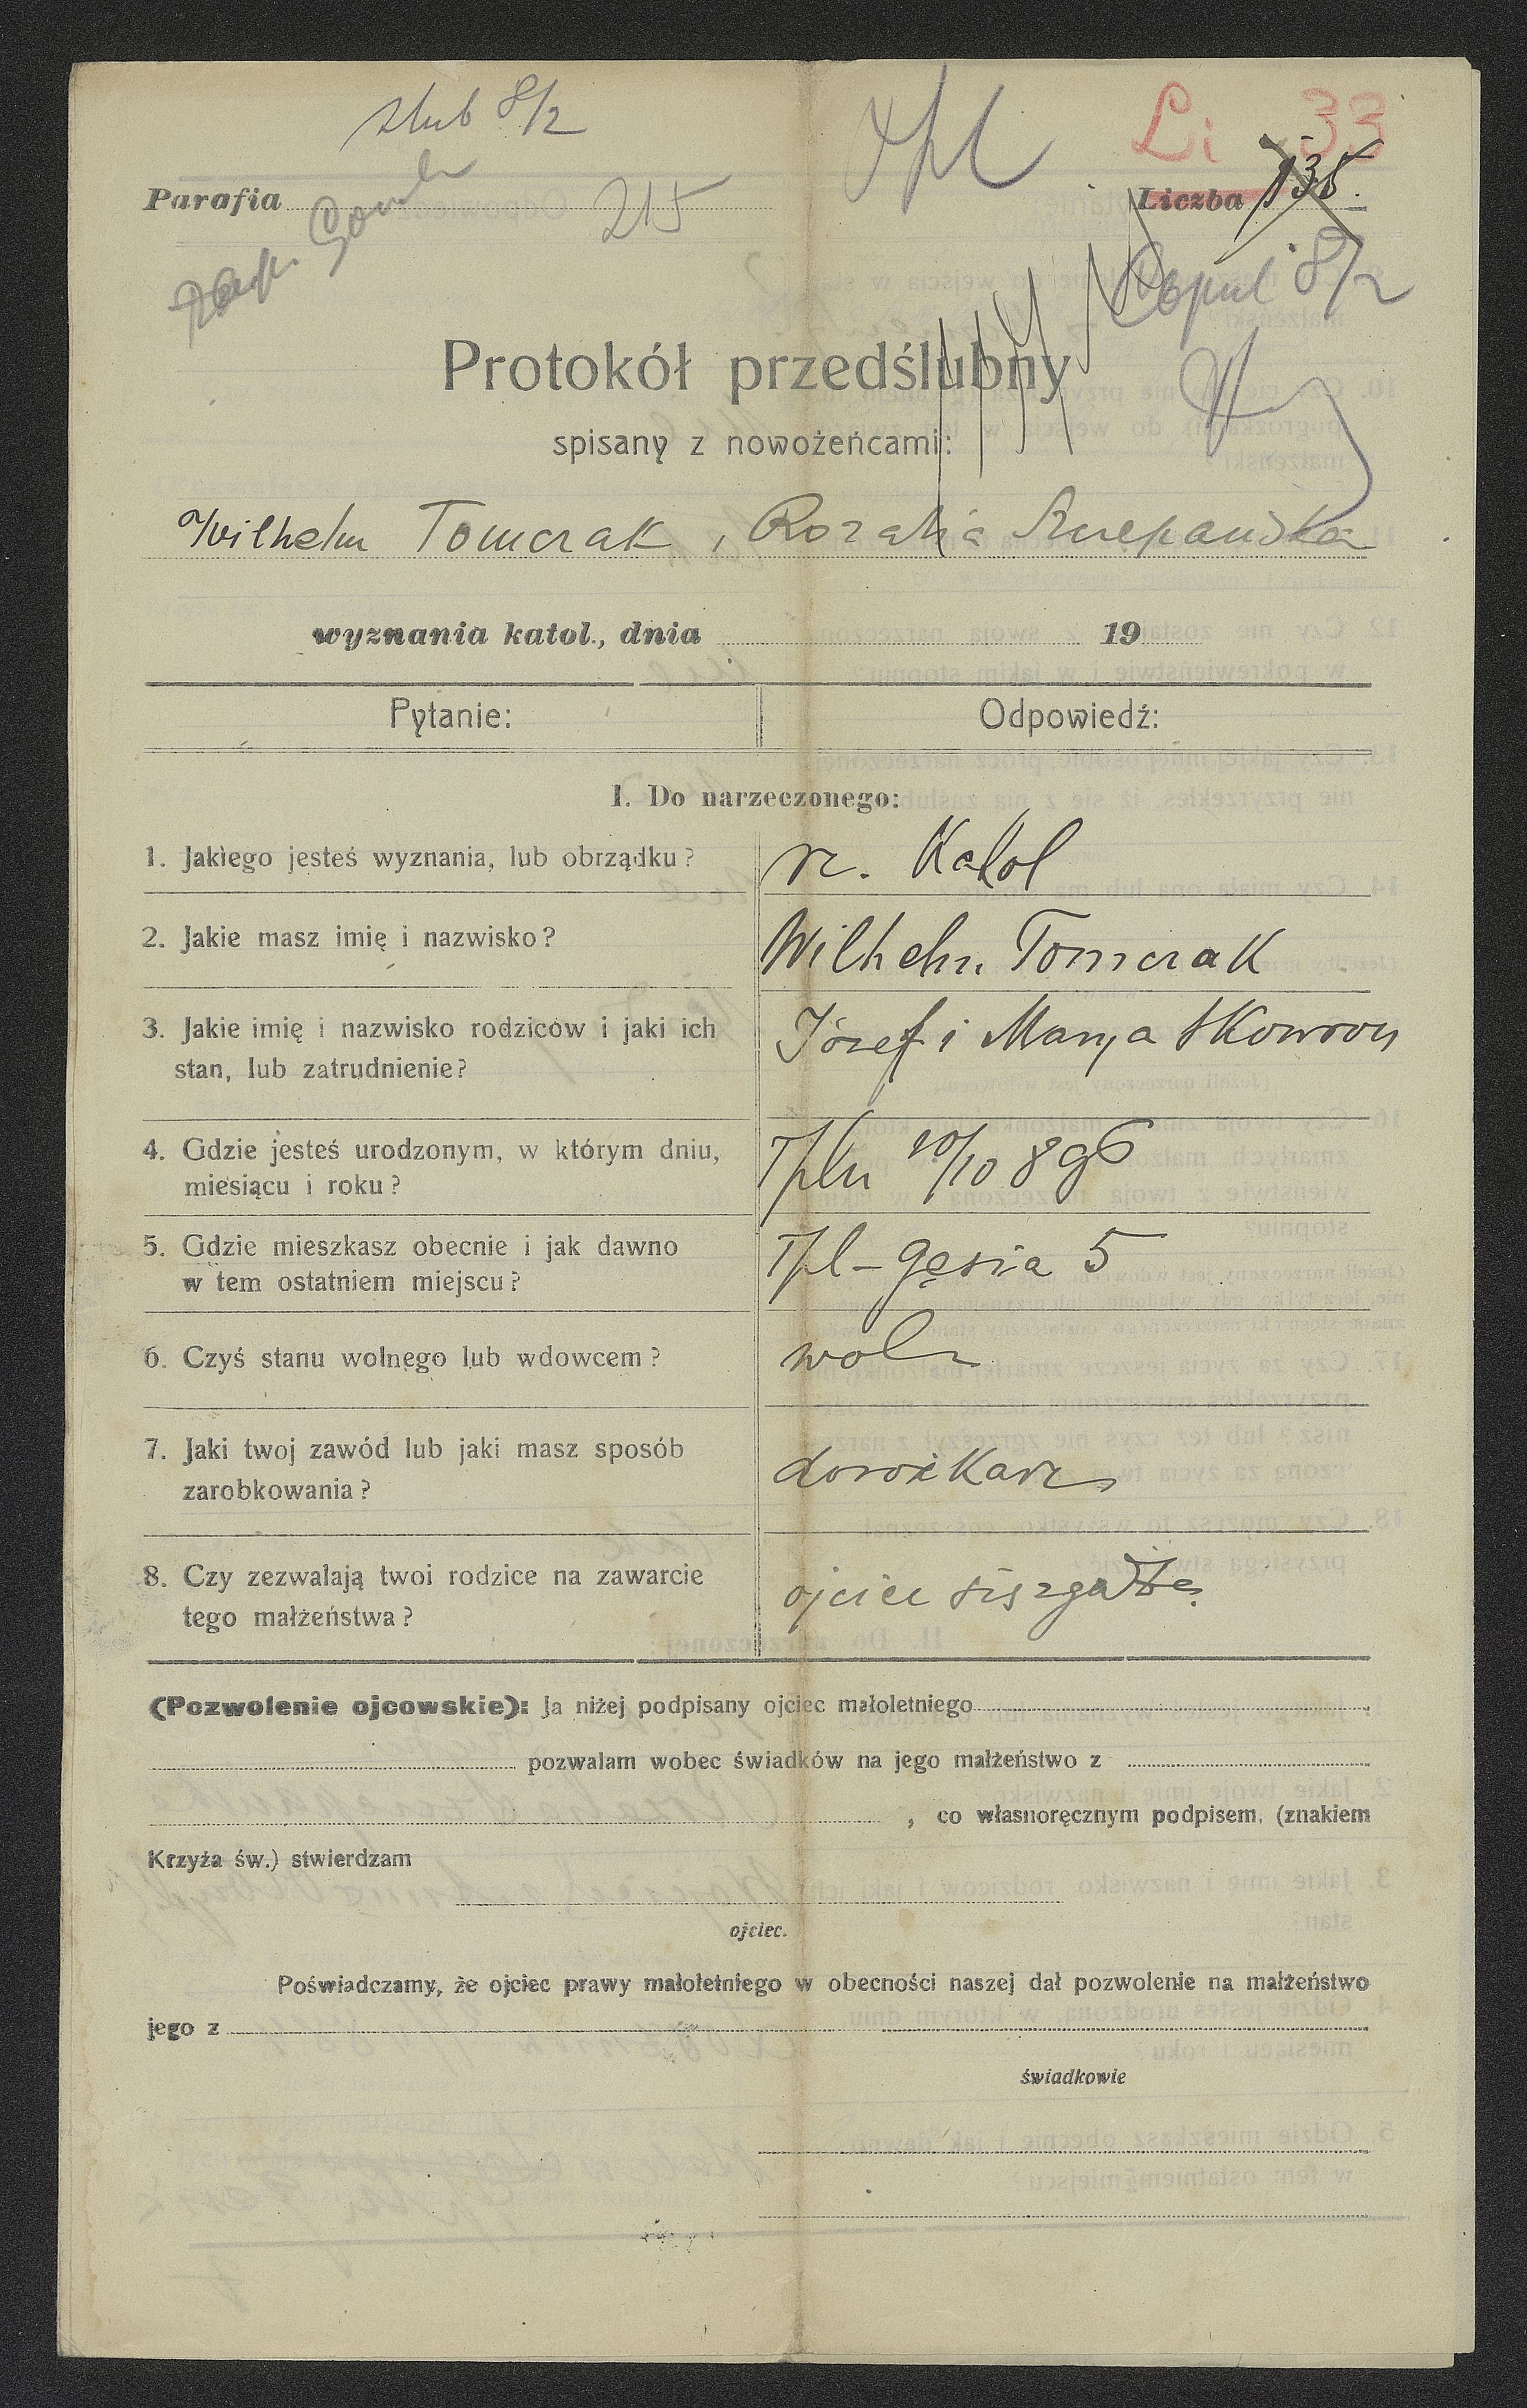 ślub 8/2
Li 33
Parafia 215
Liczba 135.
Copul 8/2
Protokół przedślubny
spisany z nowożeńcami:
Wilhelm Tomczak, Rozalia Szczepańska
wyznania katol., dnia 19
Pytanie: Odpowiedź:
I. Do narzeczonego:
1. Jakiego jesteś wyznania, lub obrządku? rz. Katol
2. Jakie masz imię i nazwisko? Wilhelm Tomczak
3. Jakie imię i nazwisko rodziców i jaki ich Józef i Marya Skowron
stan, lub zatrudnienie?
4. Gdzie jesteś urodzonym, w którym dniu, 20/10 896
miesiącu i roku?
5. Gdzie mieszkasz obecnie i jak dawno Tpl – gęsia 5
w tem ostatniem miejscu?
6. Czyś stanu wolnego lub wdowcem? woln
7. Jaki twoj zawód lub jaki masz sposób dorożkarz
zarobkowania?
8. Czy zezwalają twoi rodzice na zawarcie ojciec się zgadza
tego małżeństwa?
(Pozwolenie ojcowskie): Ja niżej podpisany ojciec małoletniego
pozwalam wobec świadków na jego małżeństwo z
, co własnoręcznym podpisem. (znakiem
Krzyża św.) stwierdzam
ojciec.
Poświadczamy, że ojciec prawy małoletniego w obecności naszej dał pozwolenie na małżeństwo
jego z
świadkowie